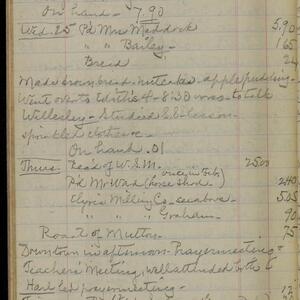 On hand - 7.90
Wed. 25 Pd Mrs. Maddock 5.90
" " Bailey - 165
Bread 24
Made brown bread - apple pudding -
Went over to Edith's 4-8:30 was to talk
Wellesley - Studied S.S. lesson -
sprinkled clothes -
On hand .01
Thurs. Rec'd of W.S.M. 25.00
Pd Mr Ward (horse shod) 240
Elyria Milling Co - 5.05
" " " Graham - 90
Roast of Mutton 75
Downtown in afternoon - Prayermeeting -
Teachers Meeting, well attended by the
Had led prayermeeting -